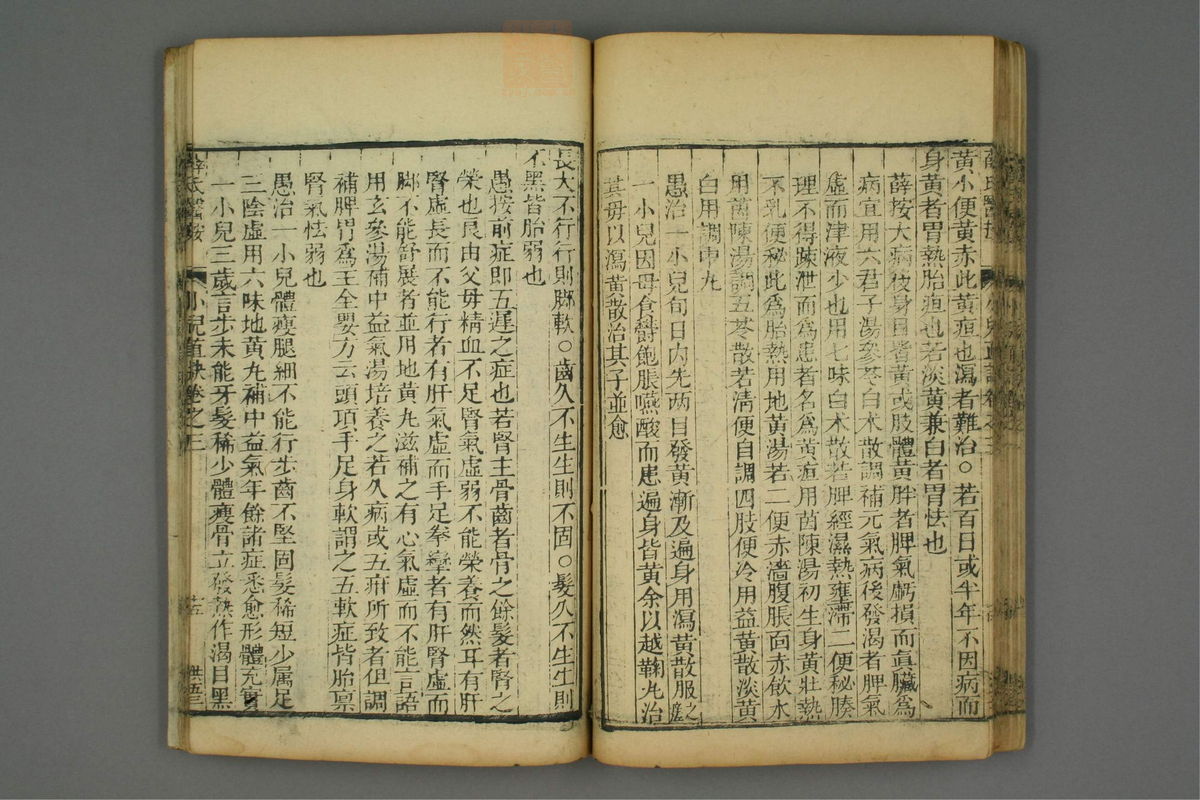 黃小便黃赤此黃疸也瀉者難治○若百日或半年不因病而
身黃者胃熱胎疸也若淡黃兼白者胃怯也
薛按大病後身目皆黃或肢體黃胖者脾氣虧損而眞臟為
病宜用六君子湯參苓白术散調補元氣病後發渴者脾氣
虛而津液少也用七味白术散若脾經濕熱壅滯二便秘腠
理不得疎泄而為患者名為黃疸用茵陳湯初生身黃壯熱
不乳便秘此為胎熱用地黃湯若二便赤濇腹脹面赤飲水
用茵陳湯調五苓散若淸便自調四肢便冷用益黃散淡黃
白用調中丸
愚治一小兒旬日內先兩目發黃漸及遍身用瀉黃散服之瘥
一小兒因母食鬱飽脹嚥酸而患遍身皆黃余以越鞠丸治
其母以瀉黃散治其子並愈
長大不行行則脚軟○齒久不生生則不固○髮久不生生則
不黑皆胎弱也
愚按前症即五遲之症也若腎主骨齒者骨之餘髮者腎之
榮也良由父母精血不足腎氣虛弱不能榮養而然耳有肝
腎虛長而不能行者有肝氣虛而手足拳攣者有肝腎虛而
脚不能舒展者並用地黃丸滋補之有心氣虛而不能言語
用玄參湯補中益氣湯培養之若久病或五疳所致者但調
補脾胃為主全嬰方云頭項手足身軟謂之五軟症皆胎稟
腎氣怯弱也
愚治一小兒體瘦腿細不能行步齒不堅固髮稀短少屬足
三陰虛用六味地黃丸補中益氣年餘諸症悉愈形體充實
一小兒三歲言步未能牙髮稀少體瘦骨立發熱作渴目黑
薛氏醫按
小兒直訣卷之三
十五